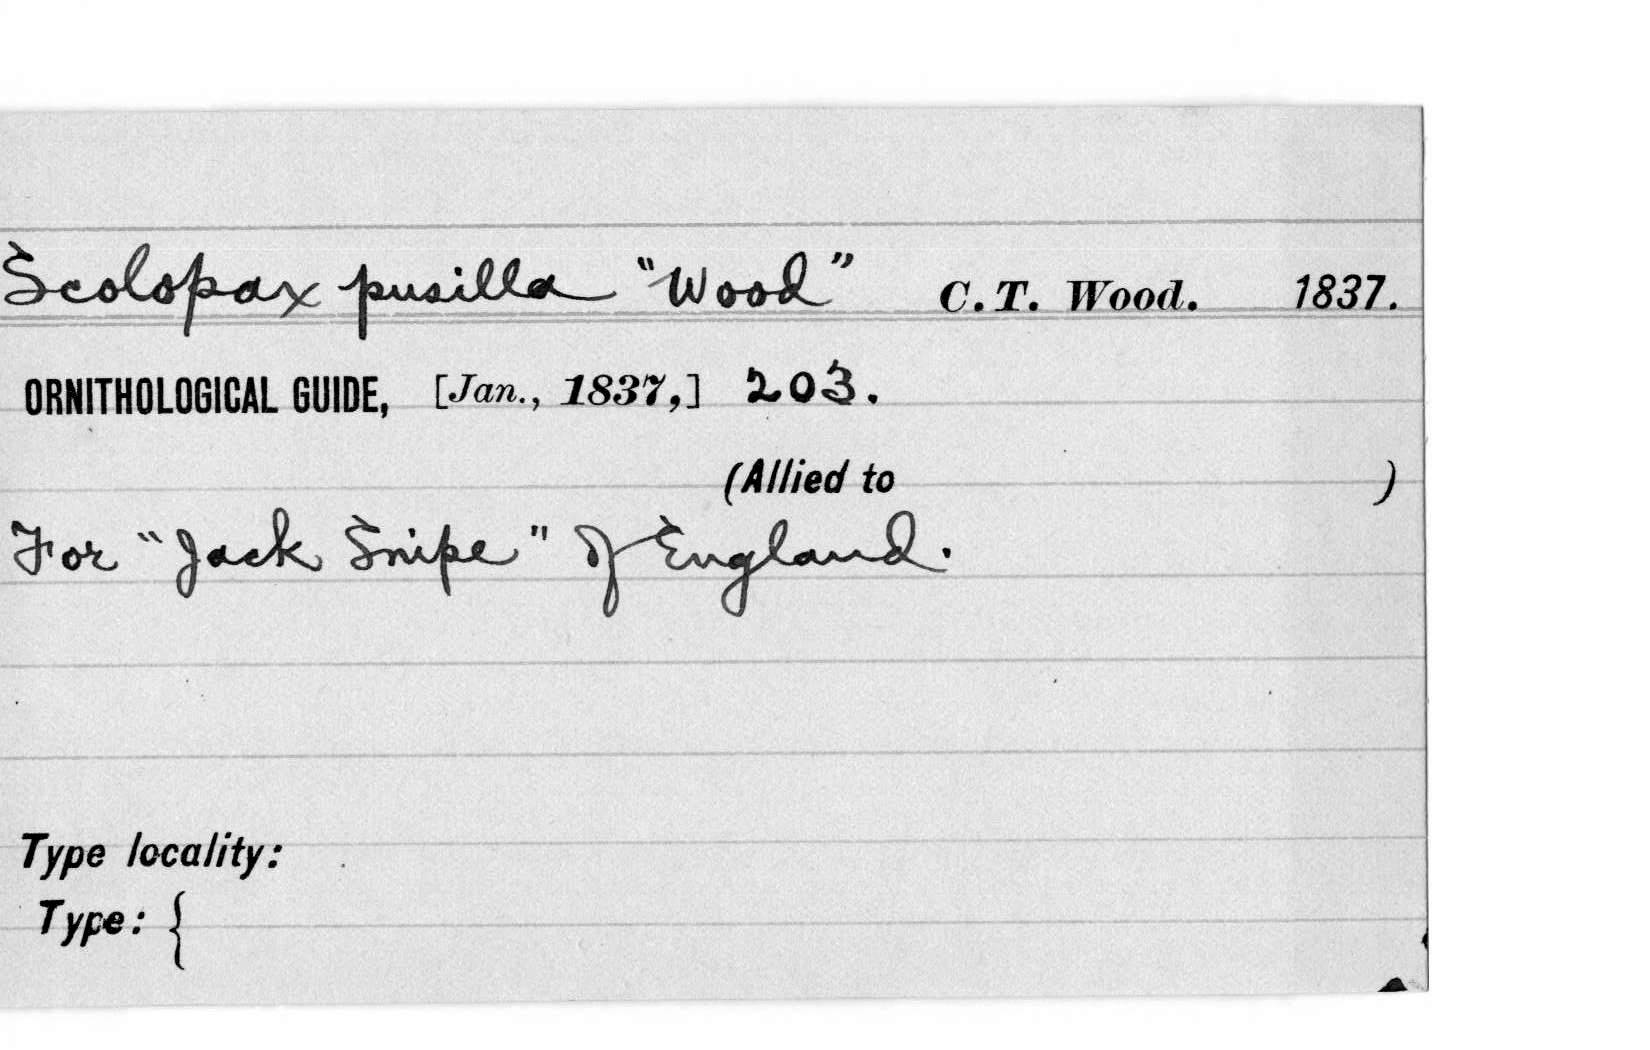 Scolopax pusilla "Wood" C.T. Wood. 1837.
ORNITHOLOGICAL GUIDE, [Jan., 1837,] 203.
(Allied to )
For "Jack Snipe" of England.
Type locality:
Type: {